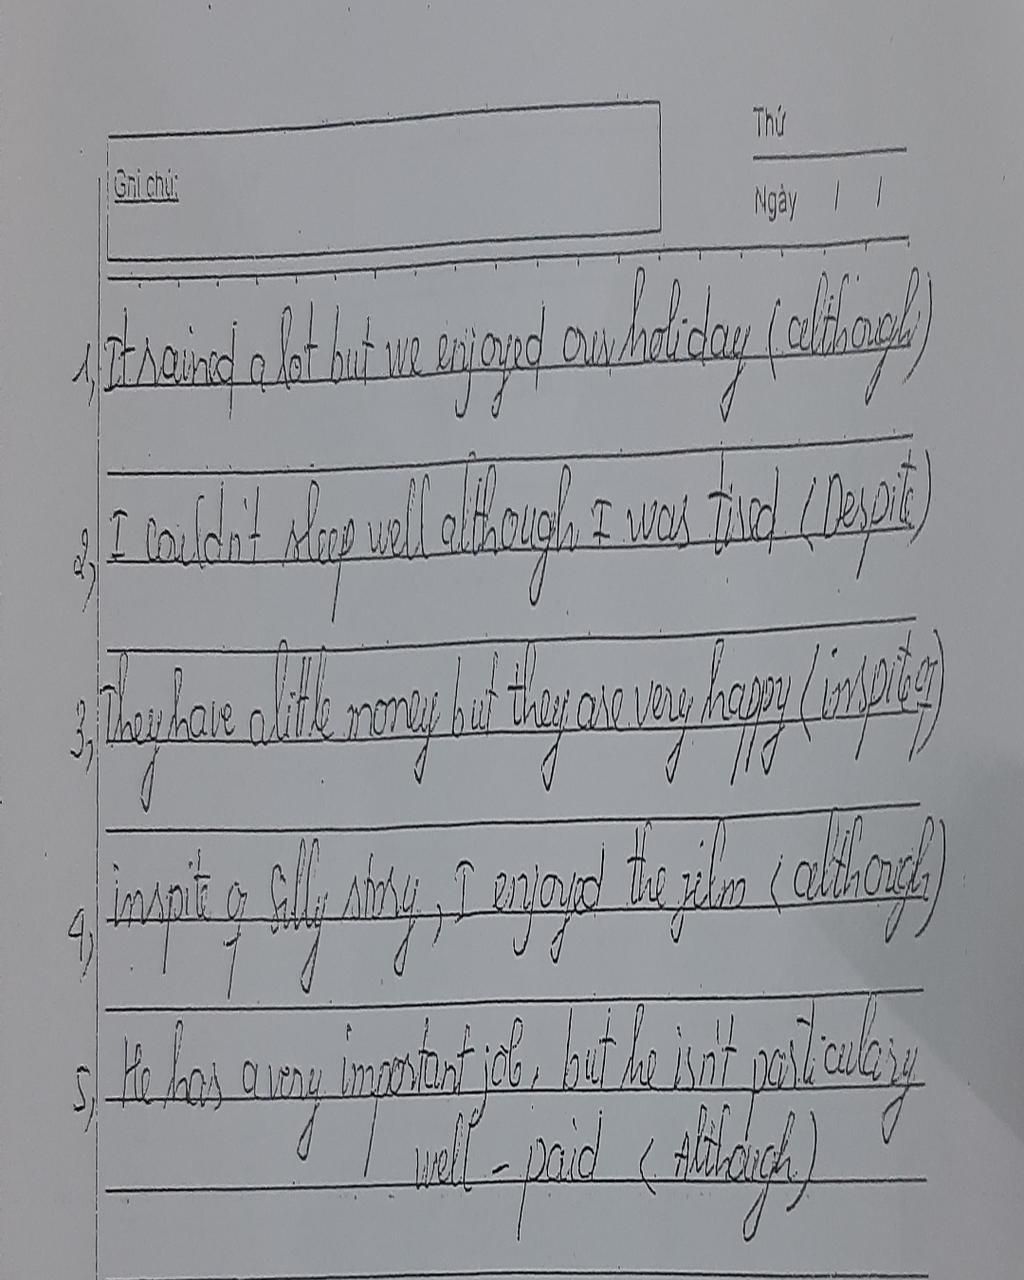 Ghi chú:
Thứ
Ngày / /
1, It rained a lot but we enjoyed our holiday (although)
2, I couldn't sleep well although I was tired (Despite)
3, They have a little money but they are very happy (inspite of)
4, inspite of silly story, I enjoyed the film (although)
5, He has a very important job, but he isn't particulary
well - paid (Although)